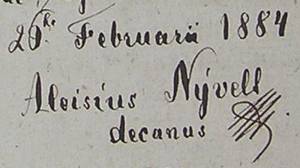 26ta Februarii 1884
Aloisius Nývelt
decanus